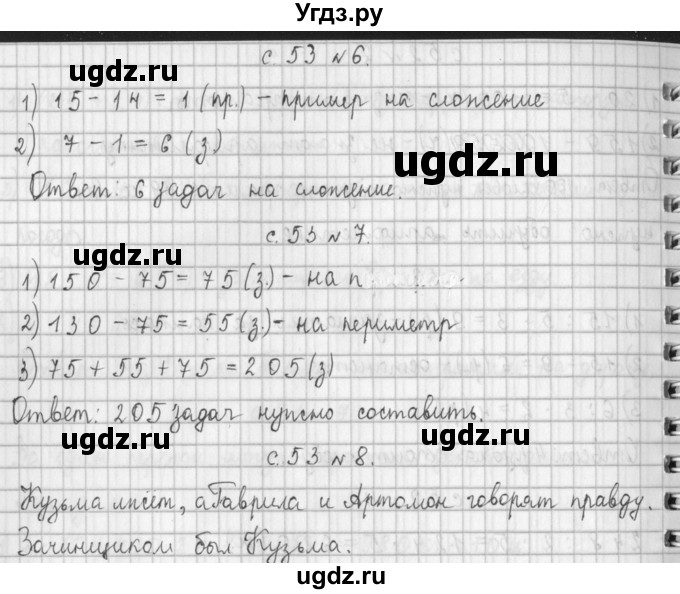 Угдз.ру
с. 53 № 6.
1) 15 - 14 = 1 (пр.) - пример на сложение
2) 7 - 1 = 6 (з.)
Ответ: 6 задач на сложение.
с. 53 № 7.
1) 150 - 75 = 75 (з.) - на п
2) 130 - 75 = 55 (з.) - на периметр
3) 75 + 55 + 75 = 205 (з)
Ответ: 205 задач нужно составить.
с. 53 № 8.
Кузьма лжет, а Гаврила и Артомон говорят правду.
Зачинщиком был Кузьма.
ugdz.ru
ugdz.ru
ugdz.ru
ugdz.ru
ugdz.ru
ugdz.ru
ugdz.ru
ugdz.ru